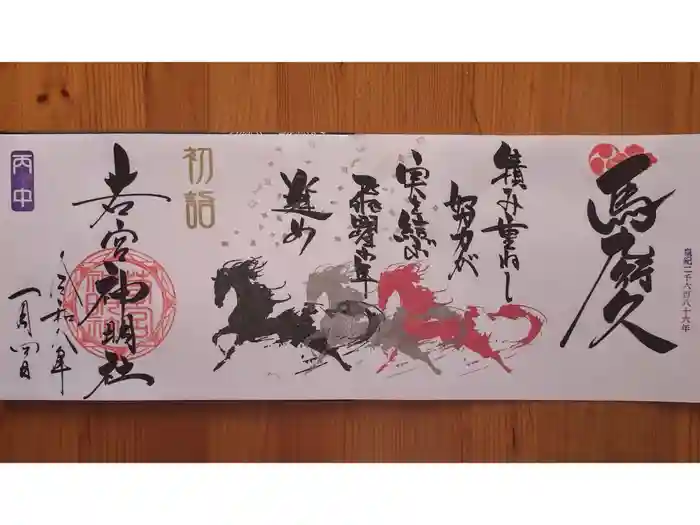 皇紀二千六百八十六年
積み重ねし
努力が
実を結ぶ
飛躍の年
進め
初詣
若宮神明社
令和八年
一月四日